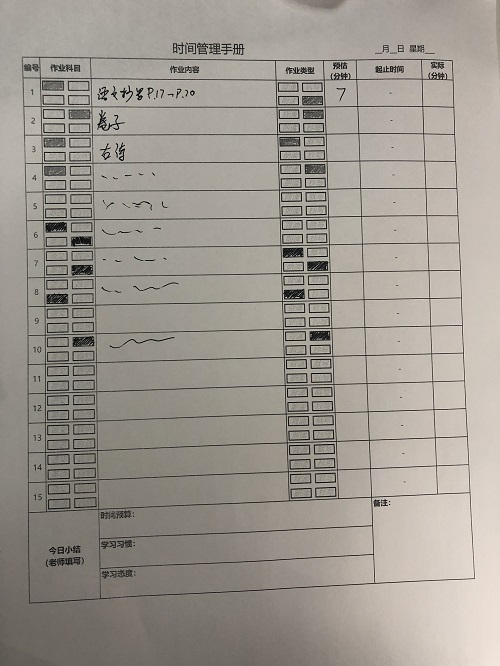 时间管理手册
__月__日 星期__
编号 作业科目 作业内容 作业类型 预估(分钟) 起止时间 实际(分钟)
1 P.17-P.20 7 -
2 卷子 -
3 古诗 -
4 -
5 -
6 -
7 -
8 -
9 -
10 -
11 -
12 -
13 -
14 -
15 -
今日小结
(老师填写)
时间预算:
备注:
学习习惯:
学习态度: